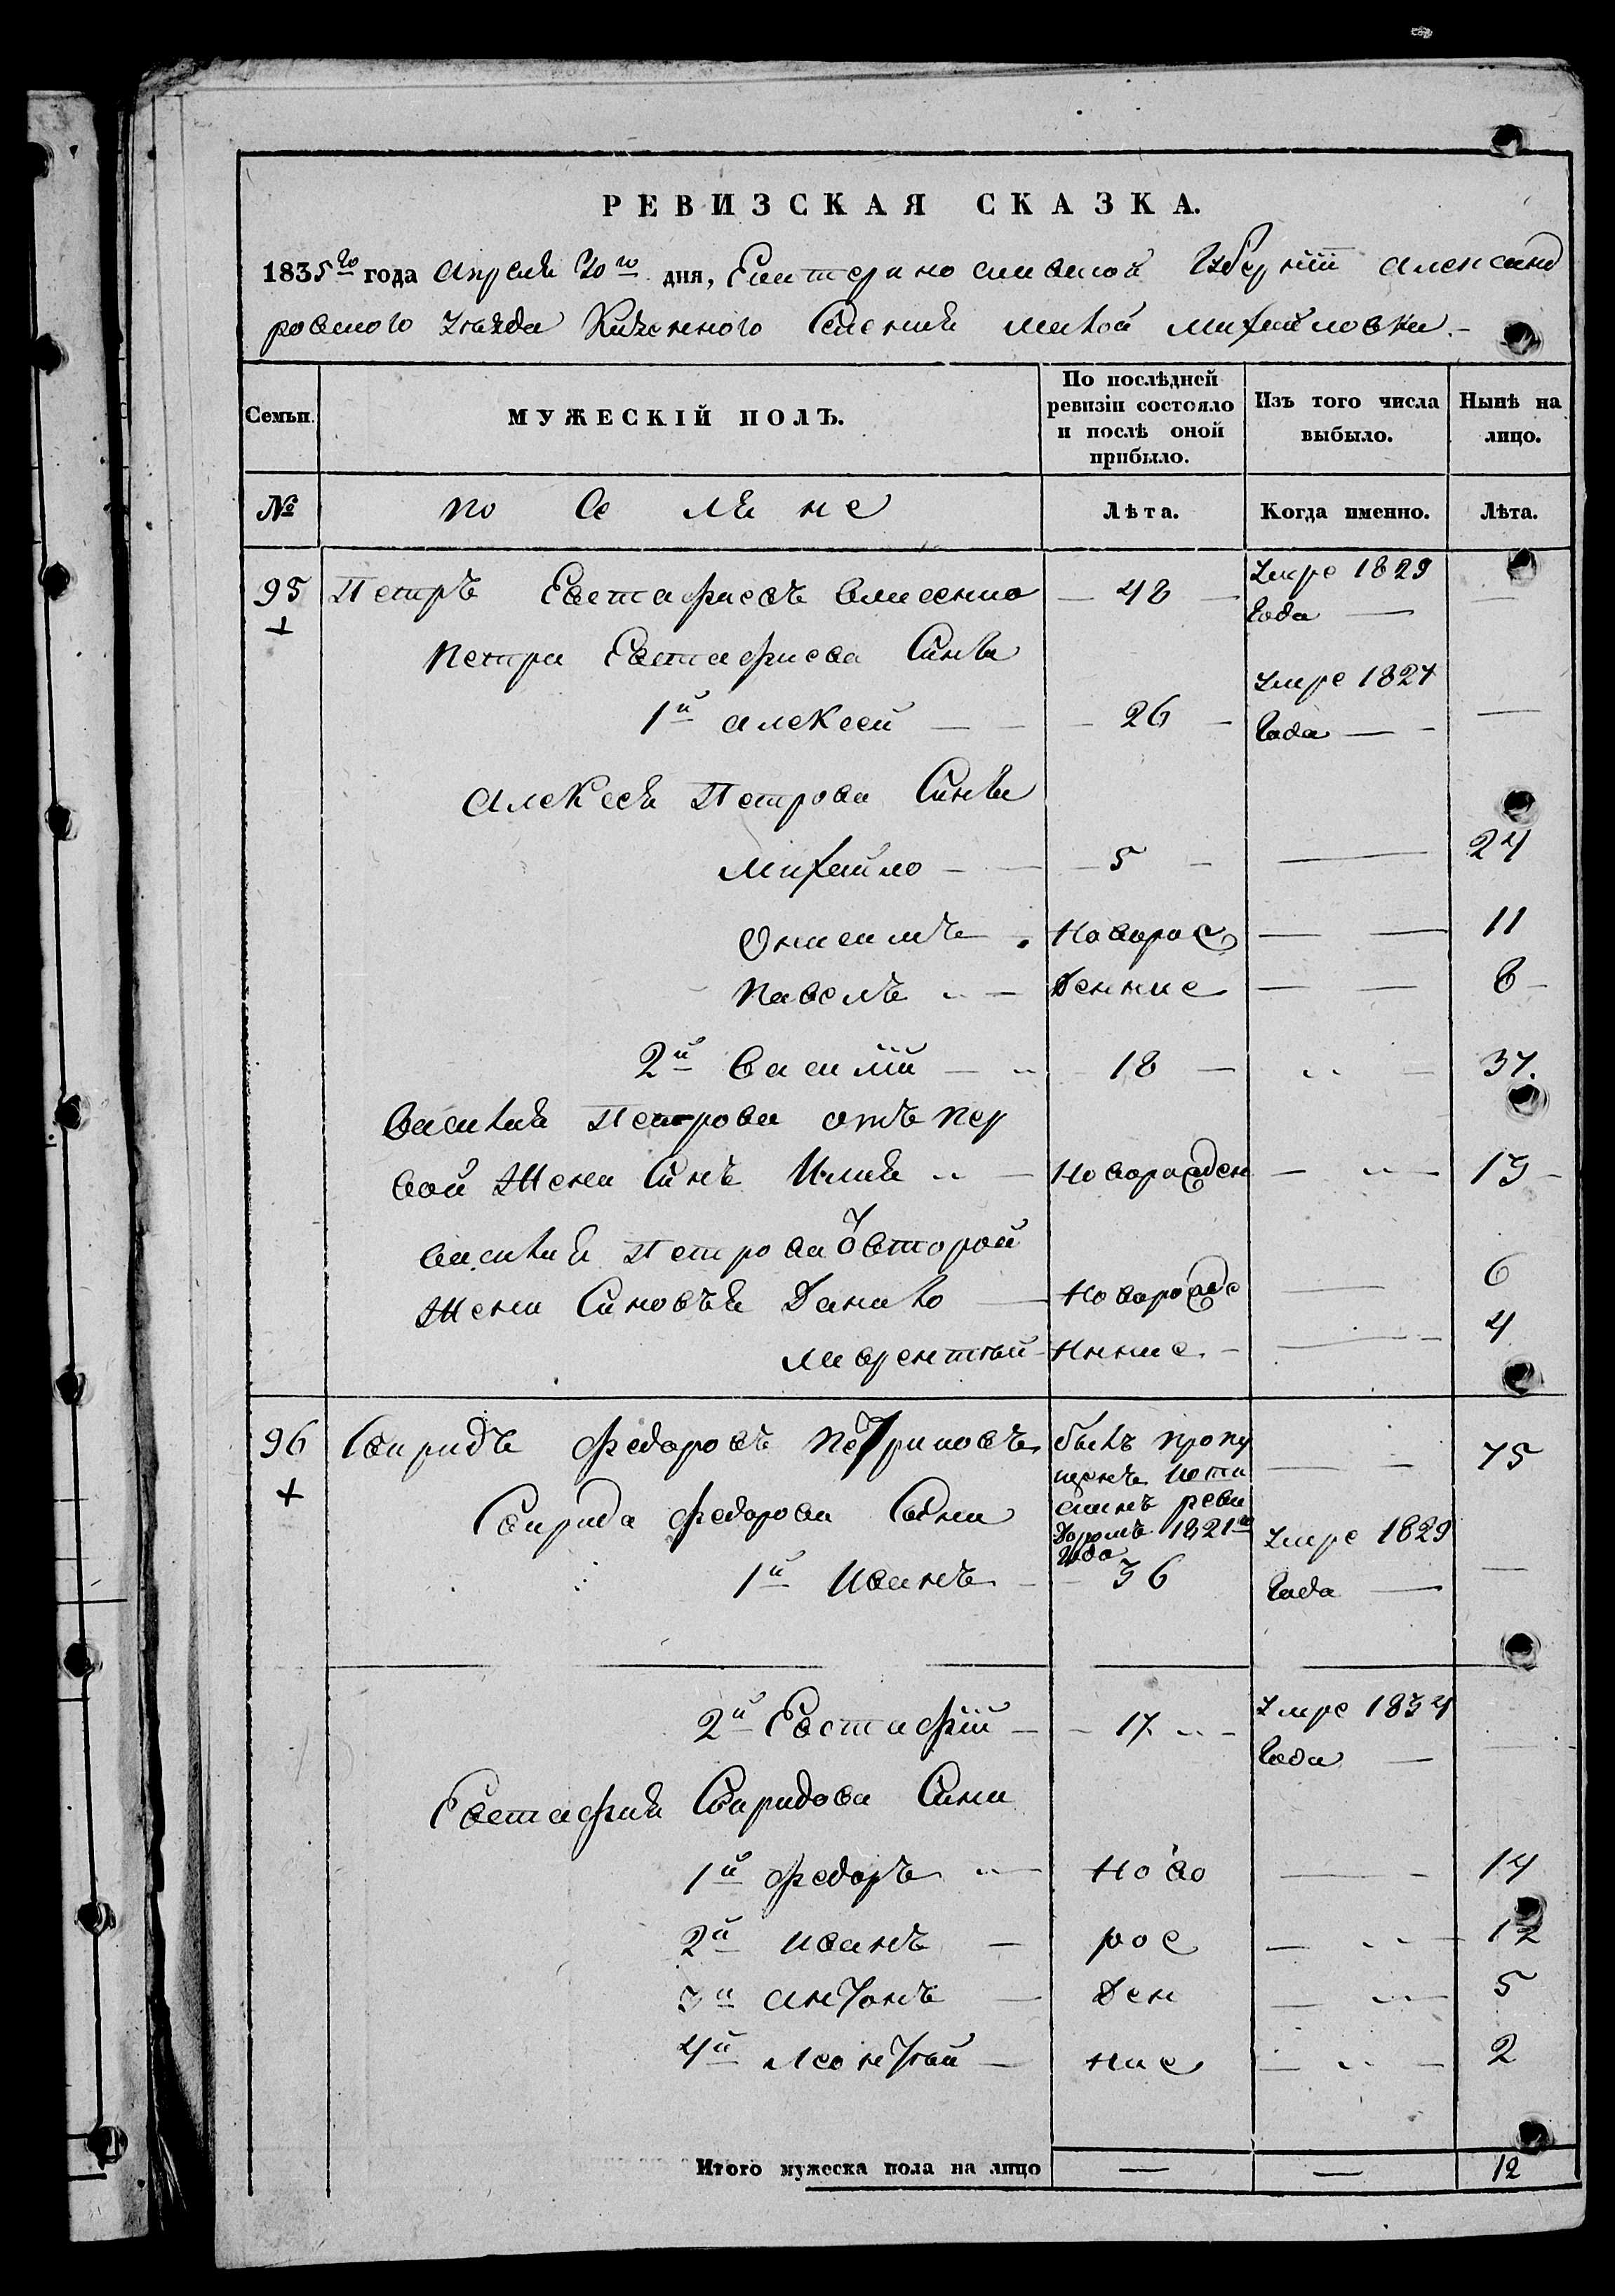 РЕВИЗСКАЯ СКАЗКА.
1835го года Апреля 20го дня, Екатеринославской Губернии Александ
ровского уезда Казенного Селения малой Михайловки.-
Семьи.
МУЖЕСКІЙ ПОЛЪ.
По послѣдней ревизіи состояло и послѣ оной прибыло.
Изъ того числа выбыло.
Нынѣ на лицо.
№
По Се ля не
Лѣта.
Когда именно.
Лѣта.
95 Петръ Евстафиевъ — 48 — умре 1829 года —
Петра Евстафиева Синъи
1й Алексей — 26 — умре 1827 года —
Алексея Петрова Синъи
Михайло — 5 — 24
Онисимъ Новорос — 11
Павелъ денние — 8
2й Василій — 18 — 37.
Василия Петрова отъ пер
вой Жени Синъ Илия Новорожден — 15
Василия Петрова втории
Жени Синовъя Данило Новорожде — 6
Лаврентий нние. — 4
96 Свиридъ Федоровъ былъ пропу — 75
щенъ
Свирида Федорова Сини реви
зоромъ 1821го года
1й Иванъ — 36 умре 1829 года —
2й Евстафій — 17 — умре 1834 года —
Евстафия Свиридова Сини
1й Федоръ Ново — 14
2й Иванъ рос — 12
3й Антонъ ден — 5
4й Леонтий ние — 2
Итого мужеска пола на лицо — — 12